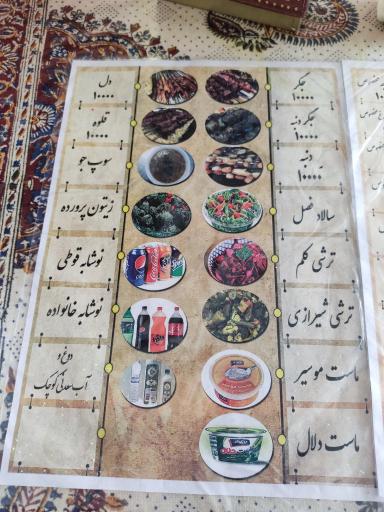 جگر
۱۰۰۰۰
جگر دنبه
۱۰۰۰۰
دنبه
۱۰۰۰۰
سالاد فصل
ترشی کلم
ترشی شیرازی
ماست موسیر
ماست دلال
دل
۱۰۰۰۰
قلوه
۱۰۰۰۰
سوپ جو
زیتون پرورده
نوشابه قوطی
نوشابه خانواده
دوغ و
آب معدنی کوچک